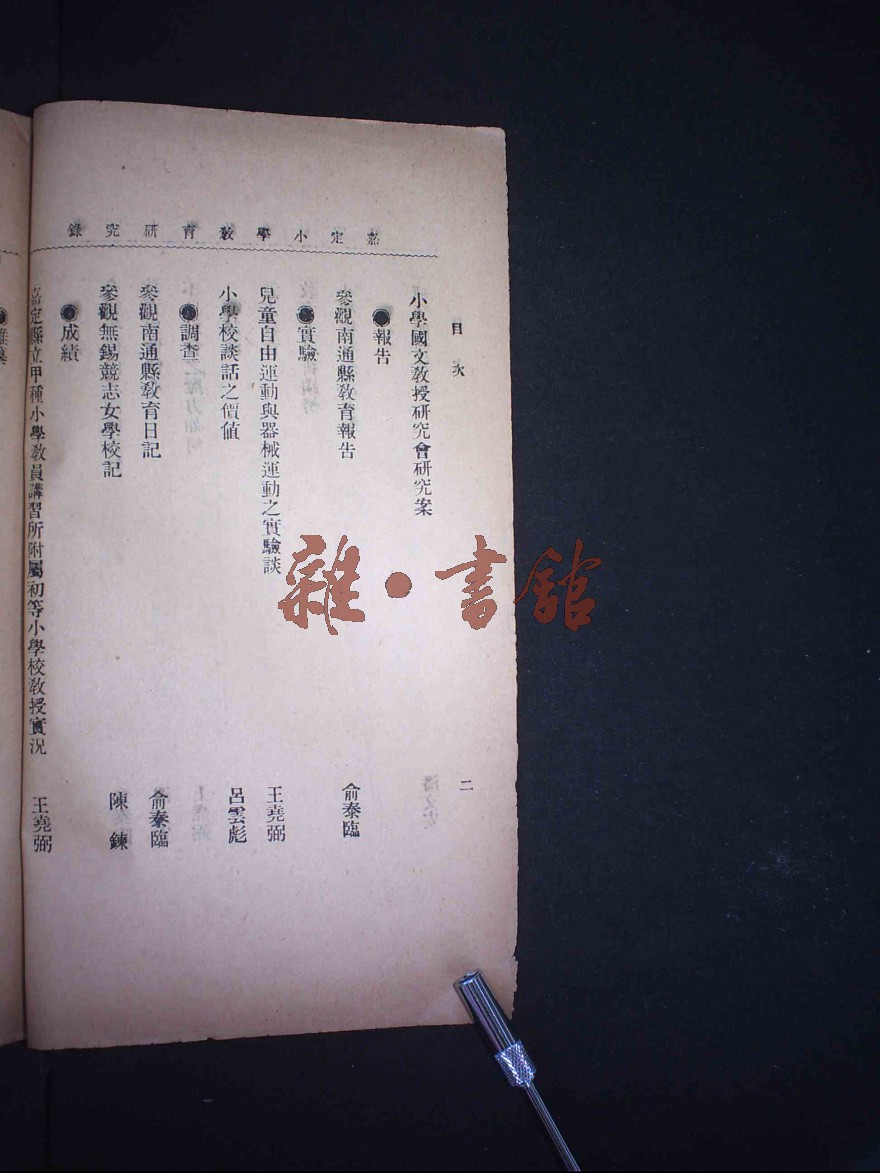 嘉定小學敎育硏究錄
目次
二
小學國文敎授硏究會硏究案
●報吿
參觀南通縣敎育報吿
俞泰臨
●實驗
兒童自由運動與器械運動之實驗談
王堯弼
小學校談話之價値
呂雲彪
●調查
參觀南通縣敎育日記
俞泰臨
參觀無錫競志女學校記
陳鍊
●成績
嘉定縣立甲種小學敎員講習所附屬初等小學校敎授實況
王堯弼
雜•書館